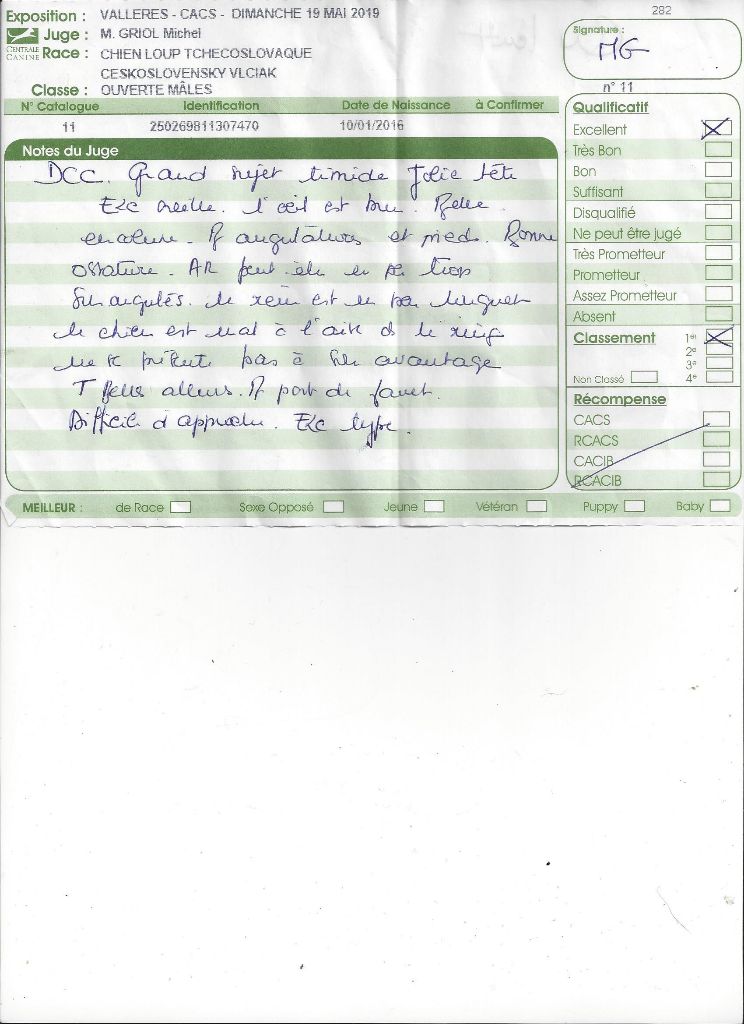 282
Exposition : VALLERES - CACS - DIMANCHE 19 MAI 2019
Juge : M. GRIOL Michel
CENTRALE CANINE
Race : CHIEN LOUP TCHECOSLOVAQUE
CESKOSLOVENSKY VLCIAK
Classe : OUVERTE MÂLES
Signature :
MG
n° 11
N° Catalogue Identification Date de Naissance à Confirmer
11 250269811307470 10/01/2016
Notes du Juge
DCC. Grand sujet timide Jolie tête
Exc oreille. l'oeil est bon. Belle
encolure. B angulations et pieds. Bonne
ossature. AR peut être un peu trop
angulés. le rein est un peu longuet
le chien est mal à l'aise ds le ring
ne se présente pas à son avantage
T Belles allures. B port de fouet.
Difficile d'approche. Exc type.
Qualificatif
Excellent
Très Bon
Bon
Suffisant
Disqualifié
Ne peut être jugé
Très Prometteur
Prometteur
Assez Prometteur
Absent
Classement 1er
2e
3e
Non Classé 4e
Récompense
CACS
RCACS
CACIB
RCACIB
MEILLEUR : de Race Sexe Opposé Jeune Vétéran Puppy Baby